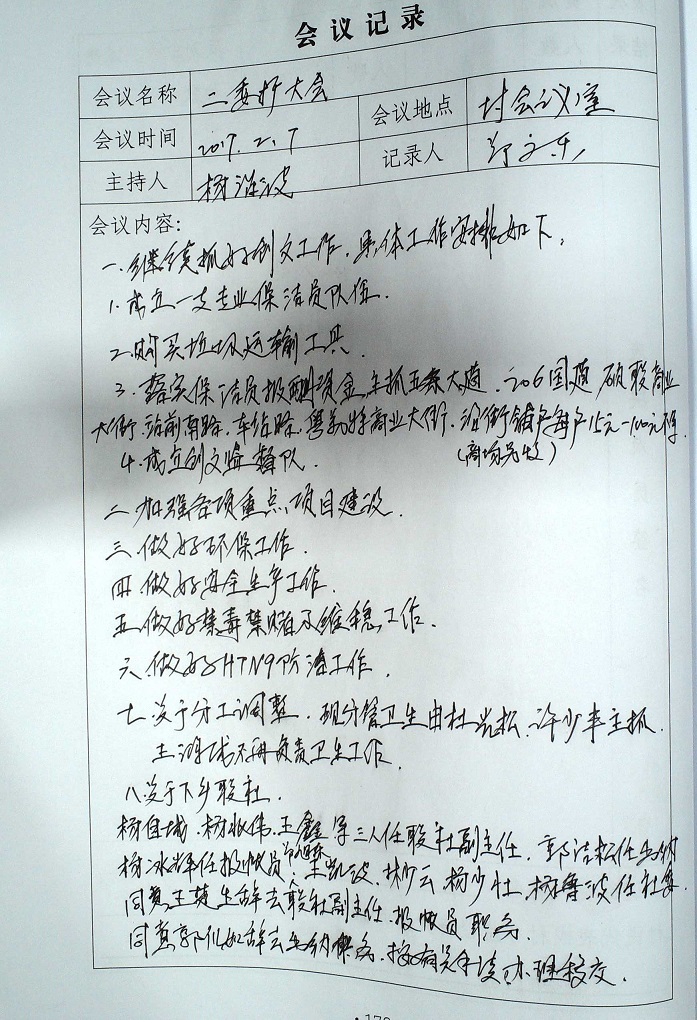 会议记录
会议名称 二委扩大会 会议地点 村会议室
会议时间 2017.2.7 记录人
主持人 杨
会议内容:
一.继续抓好创文工作,具体工作安排如下,
1.成立一支专业保洁员队伍.
2.购买垃圾运输工具.
3.落实保洁员报酬资金,主抓 大道.206国道 硕联商业
大街.站前南路.车站路.粤 特商业大街.沿街铺户每户15元-100元不等
(商场另收)
4.成立创文监督队.
二.加强各项重点项目建设.
三.做好环保工作.
四.做好安全生产工作.
五.做好禁毒禁赌及维稳工作.
六.做好H7N9防治工作.
七.关于分工调整.现分管卫生由杜岩松.许少丰主抓.
王鸿城不再负责卫生工作.
八.关于下乡联社.
杨自城.杨收伟.王鑫 三人任联社副主任.郭洁松任出纳
杨冰 任报账员. 王凯波.林少云.杨少壮.杨 波任社务.
同意王楚生辞去联社副主任.报账员职务.
同意郭 如辞去出纳职务.按有关手续办理移交.